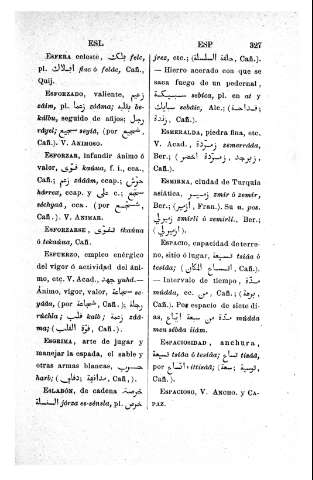 ESL
ESP 327
ESFERA celeste, فلك felc,
pl. افلاك flac ó felác, Cañ.,
Quij.
ESFORZADO, valiente, زعيم
záim, pl. زعما zóáma; بقلبه be-
kálbu, seguido de afijos; رجل
rāyel; سجيع seyiá, (por شجيع,
Cañ.). V. ANIMOSO.
ESFORZAR, infundir ánimo ó
valor, قوى kaúua, f. i., cca.,
Cañ.; زعم záâám, ccap.;
hárrez, ccap. y على c.; سجع
séchyaâ, cca. (por شجع,
Cañ.). V. ANIMAR.
ESFORZARSE, تقوى tkaúua
ó tekaúua, Cañ.
ESFUERZO, empleo enérgico
del vigor ó actividad del áni-
mo, etc. V. Acad., جهد yahd.—
Ánimo, vigor, valor, سجاعة se-
yáâa, (por شجاعة, Cañ.); رجلة
rúchla; قلب kalb; زعمة záâ-
ma; (قوة القلب, Cañ.).
ESGRIMA, arte de jugar y
manejar la espada, el sable y
otras armas blancas, حرب
harb; (مدافعة, ثقافى, Cañ.).
ESLABÓN, de cadena خرصة
jórza es-sénsla, pl. خرص السنسلة
jrez, etc.; (حلقة السلسلة, Cañ.).
— Hierro acerado con que se
saca fuego de un pedernal,
سبيكة sebica, pl. en at y
سبايك sebáic, Alc.; (قداحة,
زندة, Cañ.).
ESMERALDA, piedra fina, etc.
V. Acad., زمردة zemerrúda,
Ber.; (زبرجد, زمرد اخضر,
Cañ.).
ESMIRNA, ciudad de Turquía
asiática, زمير zmir ó zemir,
Ber.; (ازمير, Fran.). Su n. pos.
زميرلي zmirli ó zemirli, Ber.;
(ازميرلي).
ESPACIO, capacidad de terre-
no, sitio ó lugar, تساعة tsáâ ó
tesiáa; (اتساع المكان, Cañ.).
— Intervalo de tiempo, مدة
múdda, cc. من, Cañ.; (برهة,
Cañ.). Por espacio de siete dí-
as, مدة من سبعة ايام múdda
men sbâa iiám.
ESPACIOSIDAD, anchura,
تساعة tsiáa ó tesiáa; تساع tisáâ,
por اتساع ittisáâ; (وسعة, توسية,
Cañ.).
ESPACIOSO, V. ANCHO. y CA-
PAZ.